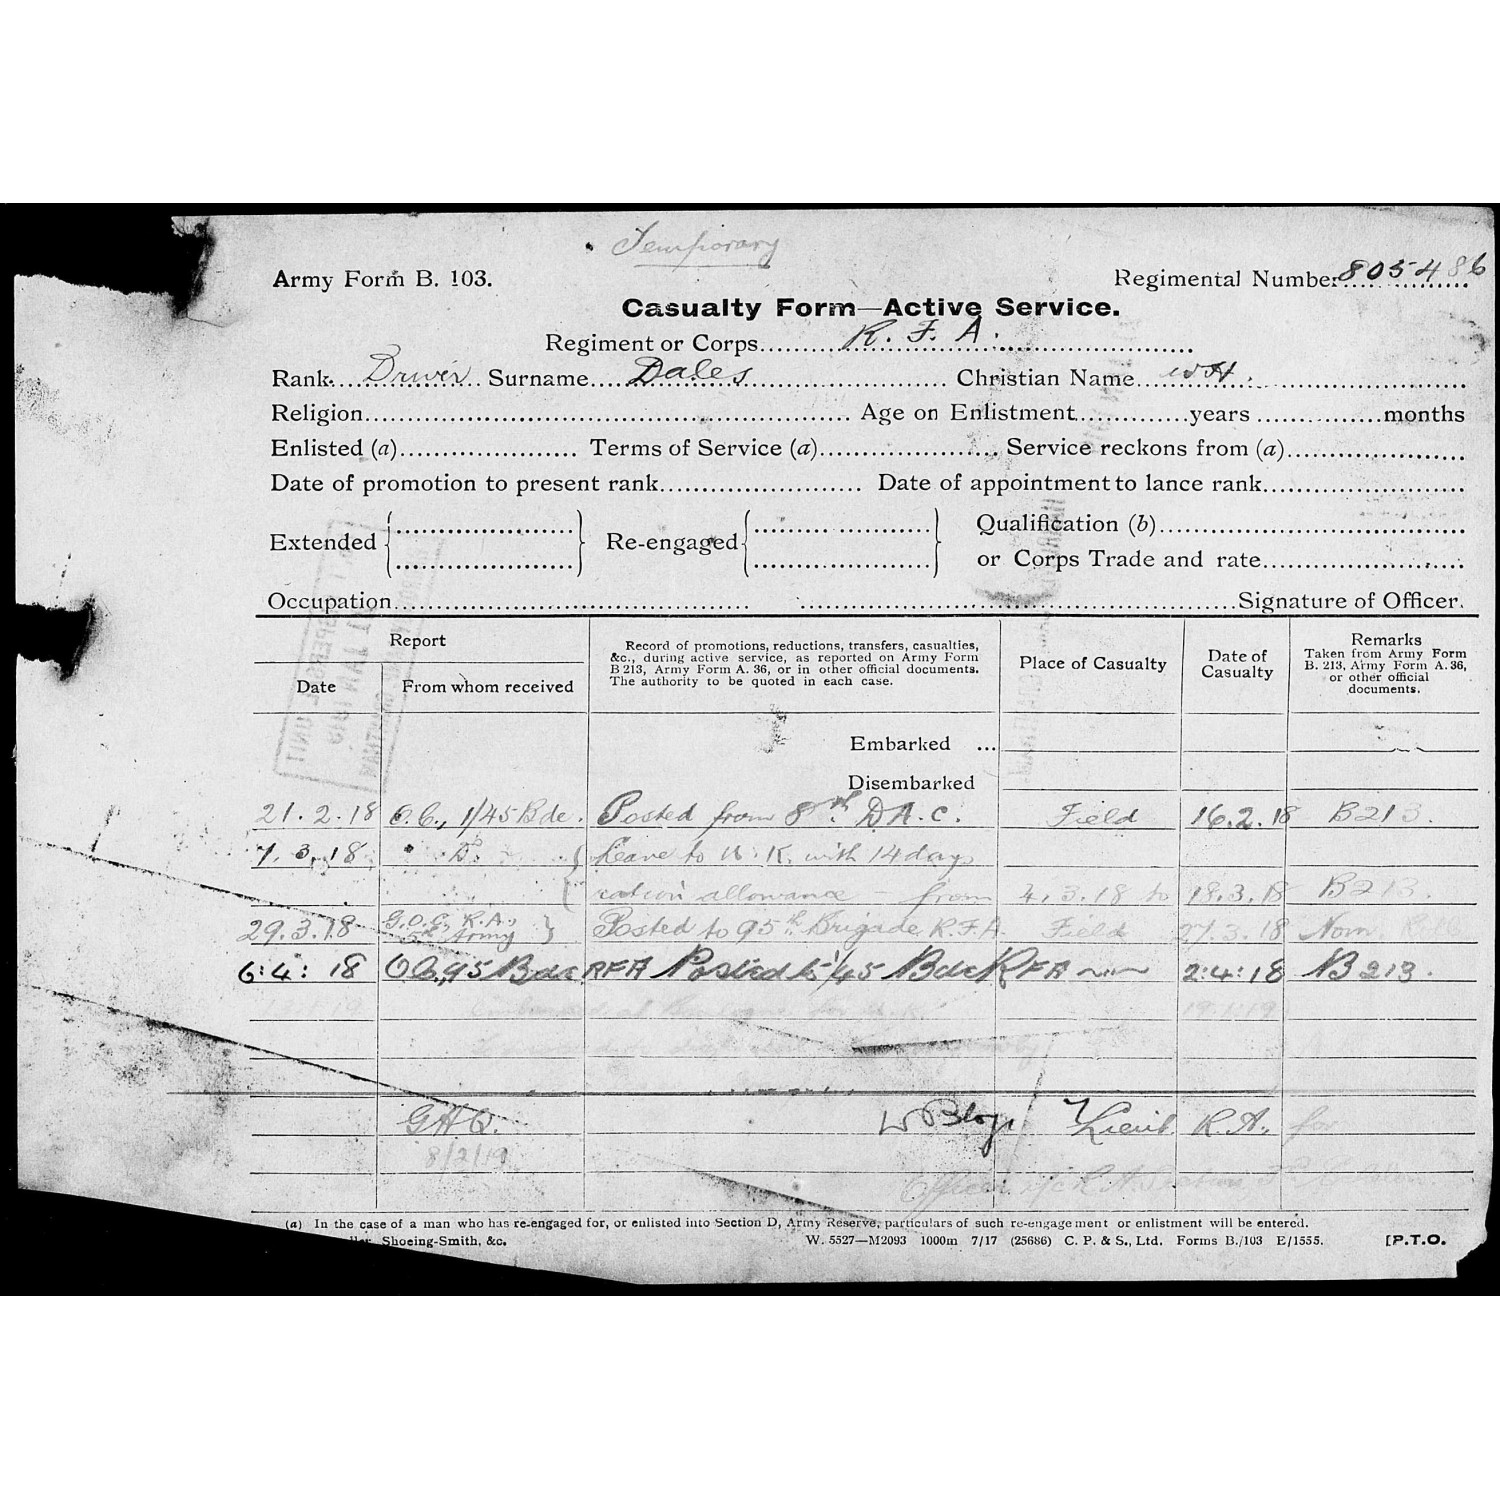 Temporary
Army Form B. 103.
Regimental Number 805486
Casualty Form—Active Service.
Regiment or Corps R. F. A.
Rank Driver Surname Dales Christian Name W H.
Religion Age on Enlistment years months
Enlisted (a) Terms of Service (a) Service reckons from (a)
Date of promotion to present rank Date of appointment to lance rank
Extended Re-engaged Qualification (b)
or Corps Trade and rate
Occupation Signature of Officer.
Report
Date From whom received
Record of promotions, reductions, transfers, casualties,
&c., during active service, as reported on Army Form
B 213, Army Form A. 36, or in other official documents.
The authority to be quoted in each case.
Place of Casualty
Date of
Casualty
Remarks
Taken from Army Form
B. 213, Army Form A. 36,
or other official
documents.
Embarked ...
Disembarked
21.2.18 O.C., 1/45 Bde. Posted from 8th D.A.C. Field 16.2.18 B213.
7.3.18 " D. Leave to U.K. with 14 days
ration allowance — from 4.3.18 to 18.3.18 B213.
29.3.18 G.O.C., R.A., 5th Army Posted to 95th Brigade R.F.A. Field 27.3.18 Nom
6:4:18 OC, 95 Bde RFA Posted to 1/45 Bde RFA 2:4:18 B213.
19.1.19
GHQ. Lieut R.A. for
8/2/19
Officer i/c R A Section
(a) In the case of a man who has re-engaged for, or enlisted into Section D, Army Reserve, particulars of such re-engagement or enlistment will be entered.
Shoeing-Smith, &c. W. 5527—M2093 1000m 7/17 (25686) C. P. & S., Ltd. Forms B./103 E/1555. [P.T.O.